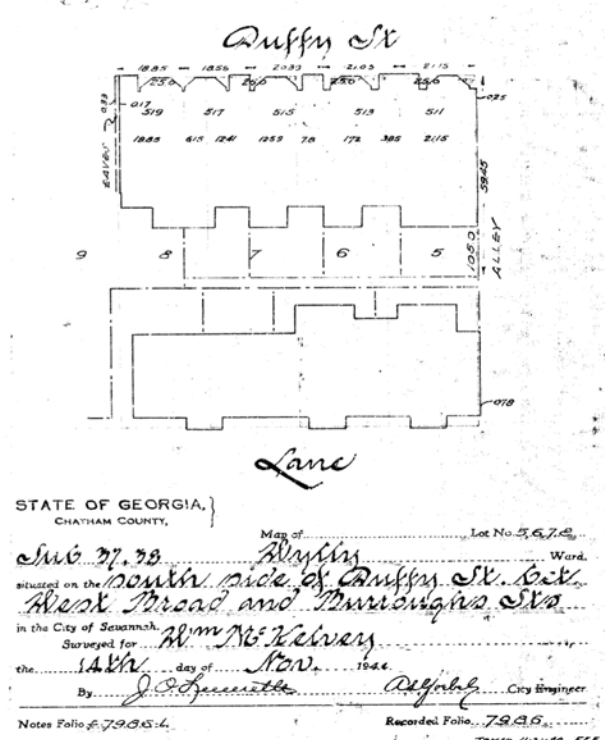 Duffy St
18.85 18.56 20.33 21.03 21.15
25.0 25.0 25.0 25.0
0.33 0.17 0.25
519 517 515 513 511
18.85 6.15 12.41 12.59 7.8 17.2 3.85 21.15
EAVES
59.45
9 8 7 6 5
10.50
ALLEY
0.78
Lane
STATE OF GEORGIA, }
CHATHAM COUNTY,
Map of Lot No. 5, 6, 7, 8,
Sub 37, 38 Wylly Ward.
situated on the south side of Duffy St. bet.
West Broad and Burroughs Sts
in the City of Savannah.
Surveyed for Wm McKelvey
the 14th day of Nov. 194
By City Engineer
Notes Folio 7986-L Recorded Folio 7986